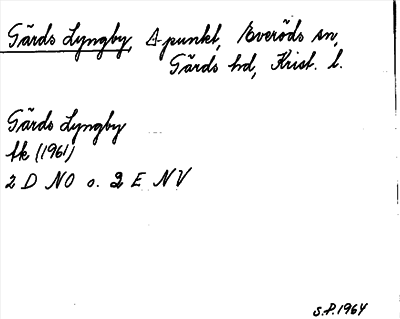 Gärds Lyngby, A-punkt, Everöds sn,
Gärds hd, Krist. l.
Gärds Lyngby
tk (1961)
2 D NO o. 2 E NV
S.P. 1964